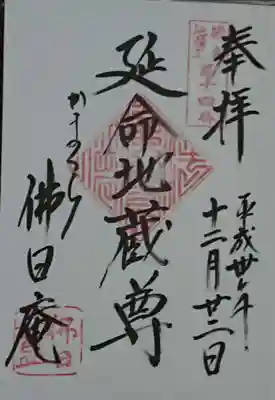 奉拝
平成卅年
十二月廿二日
延命地蔵尊
かまくら
佛日庵